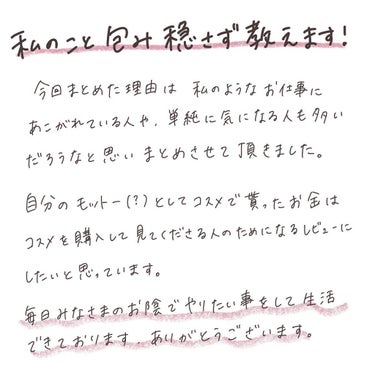 私のこと包み穏さず教えます!
今回まとめた理由は 私のような お仕事に
あこがれている人や、単純に気になる人も多い
だろうなと思い まとめさせて頂きました。
自分のモットー(?)としてコスメで貰ったお金は
コスメを購入して見てくださる人のためになるレビューに
したいと思っています。
毎日みなさまのお陰でやりたい事をして生活
できております、ありがとうございます。